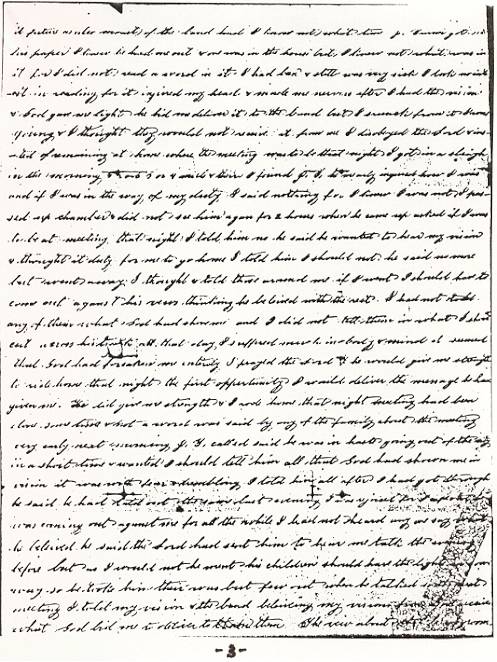 it quite a number months of the band had I know not what time J. Turner got out
his paper I knew he had one out & one was in the house but I knew not what was in
it for I did not read a word in it. I had been & still was very sick I took no inter
est in reading for it injured my head & made me nervous after I had the vision
& God gave me light he bid me deliver it to the band but I shrunk from it I was
young & I thought they would not receive it from me I disobeyed the Lord & ins
tead of remaining at home where the meeting was to be that night I got in a sleigh
in the morning & rode 3 or 4 miles & there I found J. T. he merely inquired how I was
and if I was in the way of my duty I said nothing for I knew I was not I pas
sed up chamber & did not see him again for 2 hours when he came up asked if I was
to be at meeting that night I told him no he said he wanted to hear my vision
& thought it duty for me to go home I told him I should not he said no more
but went away I thought & told those around me if I went I should have to
come out against his views thinking he believed with the rest. I had not told
any of them what God had shown me and I did not tell them in what I should
cut across his track all that day I suffered much in body & mind it seemed
that God had forsaken me entirely I prayed the Lord if he would give me strength
to ride home that night the first opportunity I would deliver the message he had
given me. He did give me strength & I rode home that night meeting had been
done some time & not a word was said by any of the family about the meeting
very early next morning J. T. called said he was in haste going out of the city
in a short time & wanted I should tell him all that God had shown me in
vision it was with fear & trembling I told him all after I had got through
he said he had told out the same last evening I was rejoiced for I expected he
was coming out against me for all the while I had not heard any one say what
he believed he said the Lord had sent him to hear me talk the evening
before but as I would not he meant his children should have the light in some
way so he took him there was but few out when he talked so the next
meeting I told my vision & the band believing my visions from God received
what God bid me to deliver to them The view about
-3-